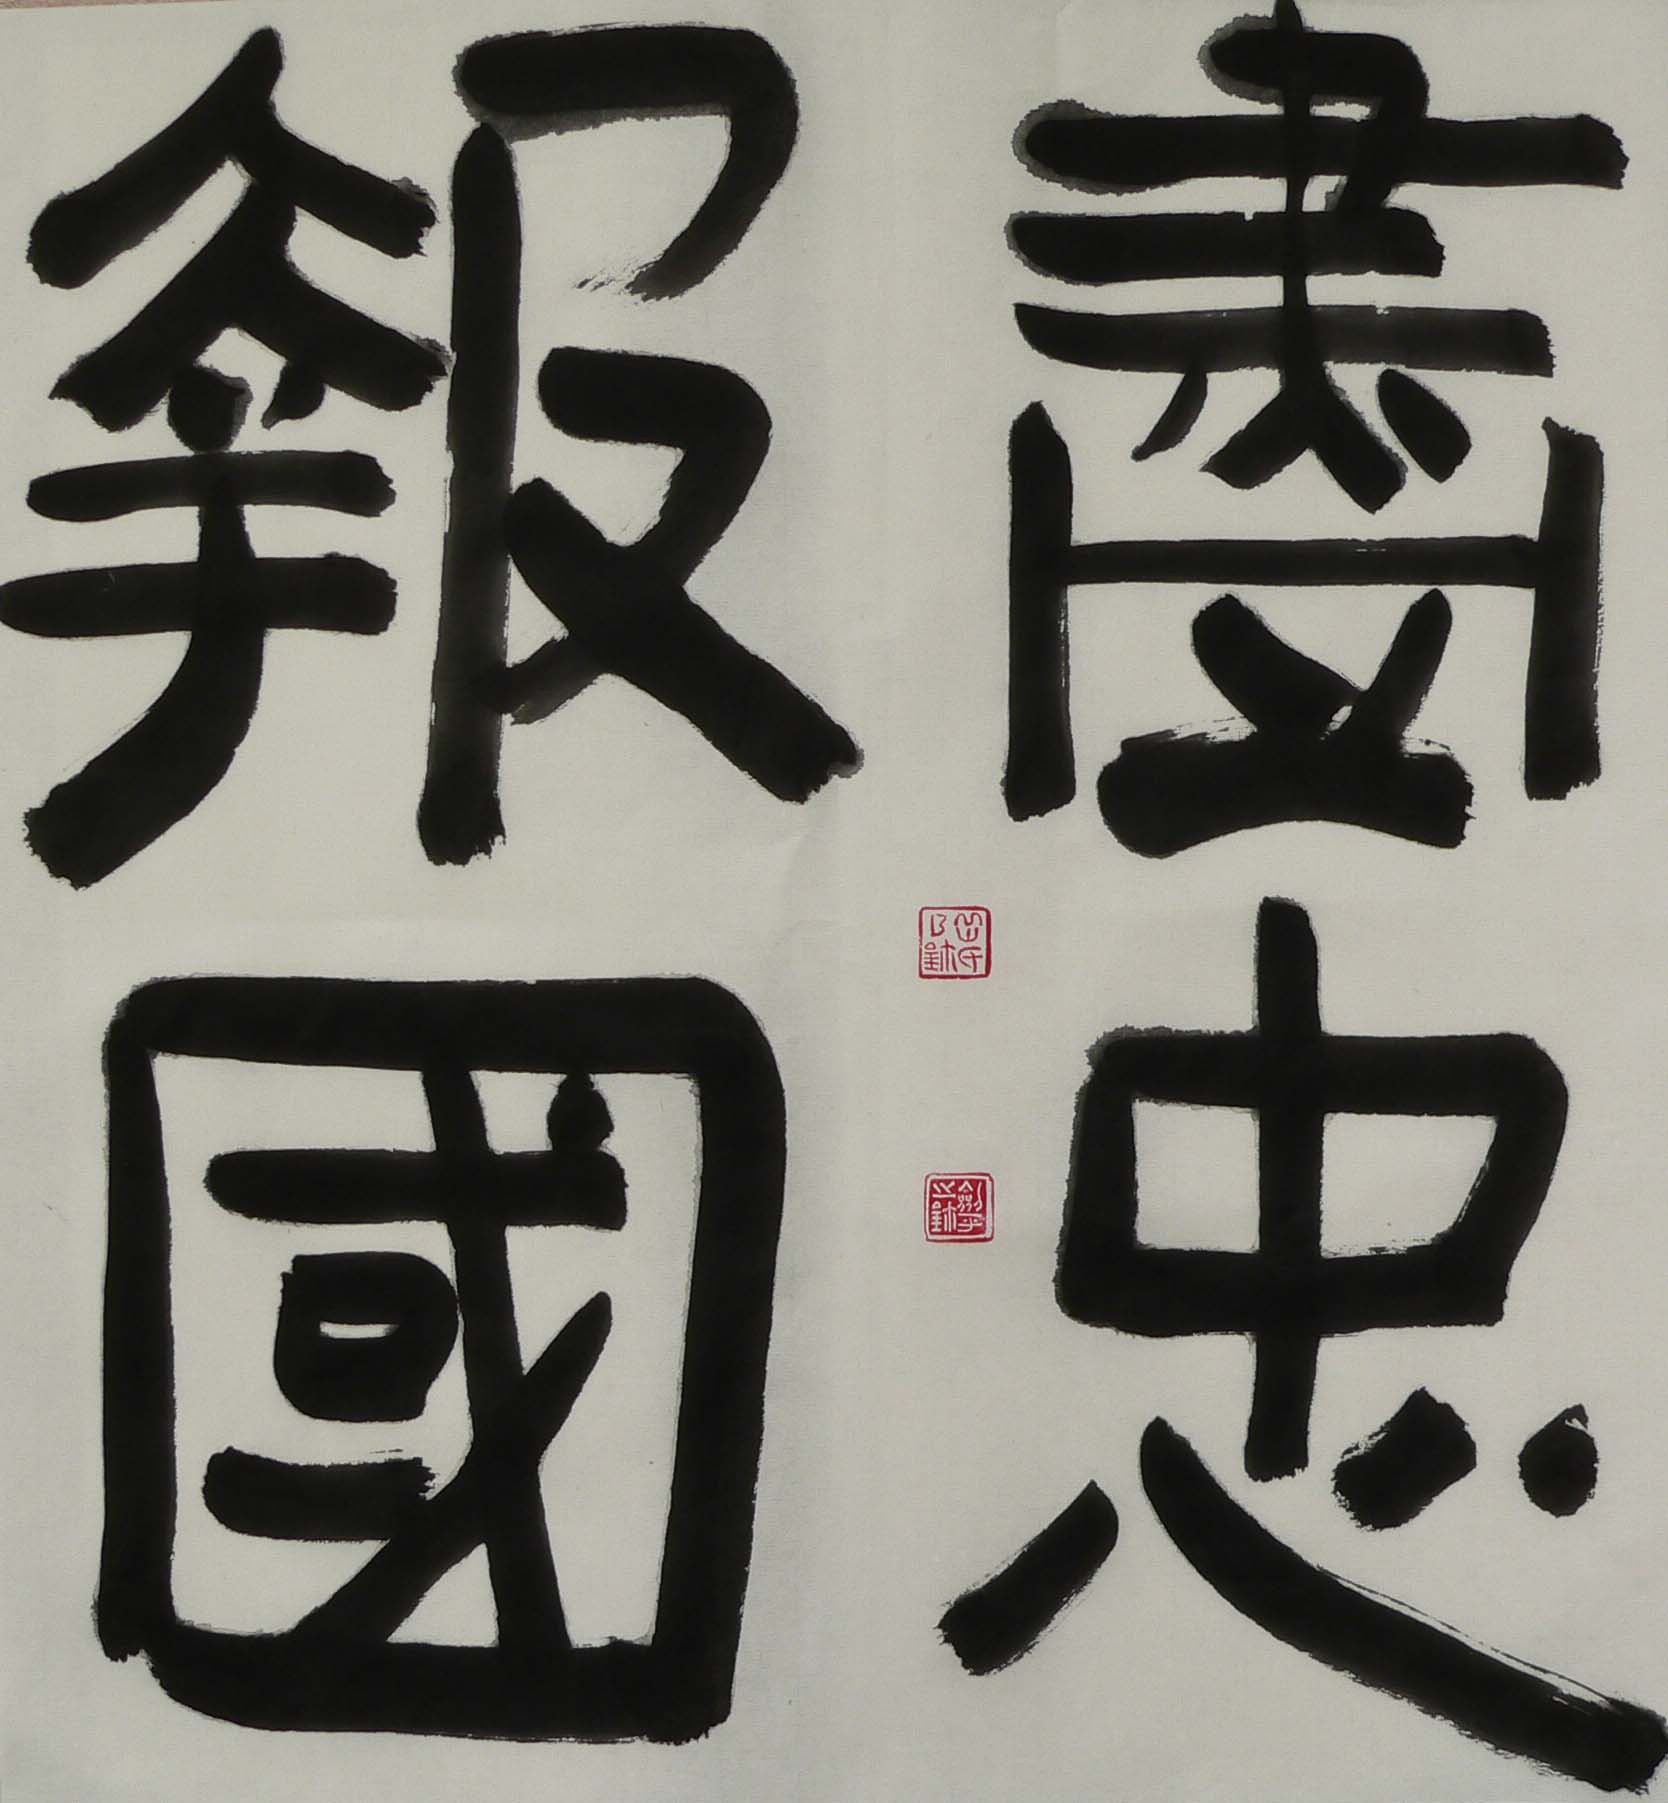 盡忠
報國